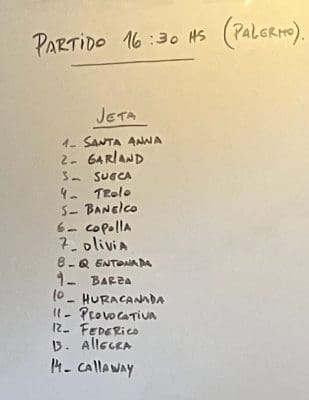 PARTIDO 16:30 HS (PALERMO).
JETA
1- SANTA ANNA
2- GARLAND
3- SUECA
4- TROLO
5- BANELCO
6- COPOLLA
7- OLIVIA
8- Q ENTONADA
9- BARZA
10- HURACANADA
11- PROVOCATIVA
12- FEDERICO
13- ALLEGRA
14- CALLAWAY